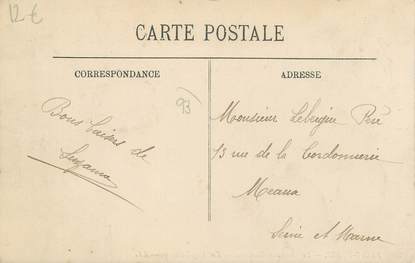 12 €
CARTE POSTALE
CORRESPONDANCE
ADRESSE
93
Bons baisers de
Suzanne
Monsieur Lebrigue Père
13 rue de la Cordonnerie
Meaux
Seine et Marne